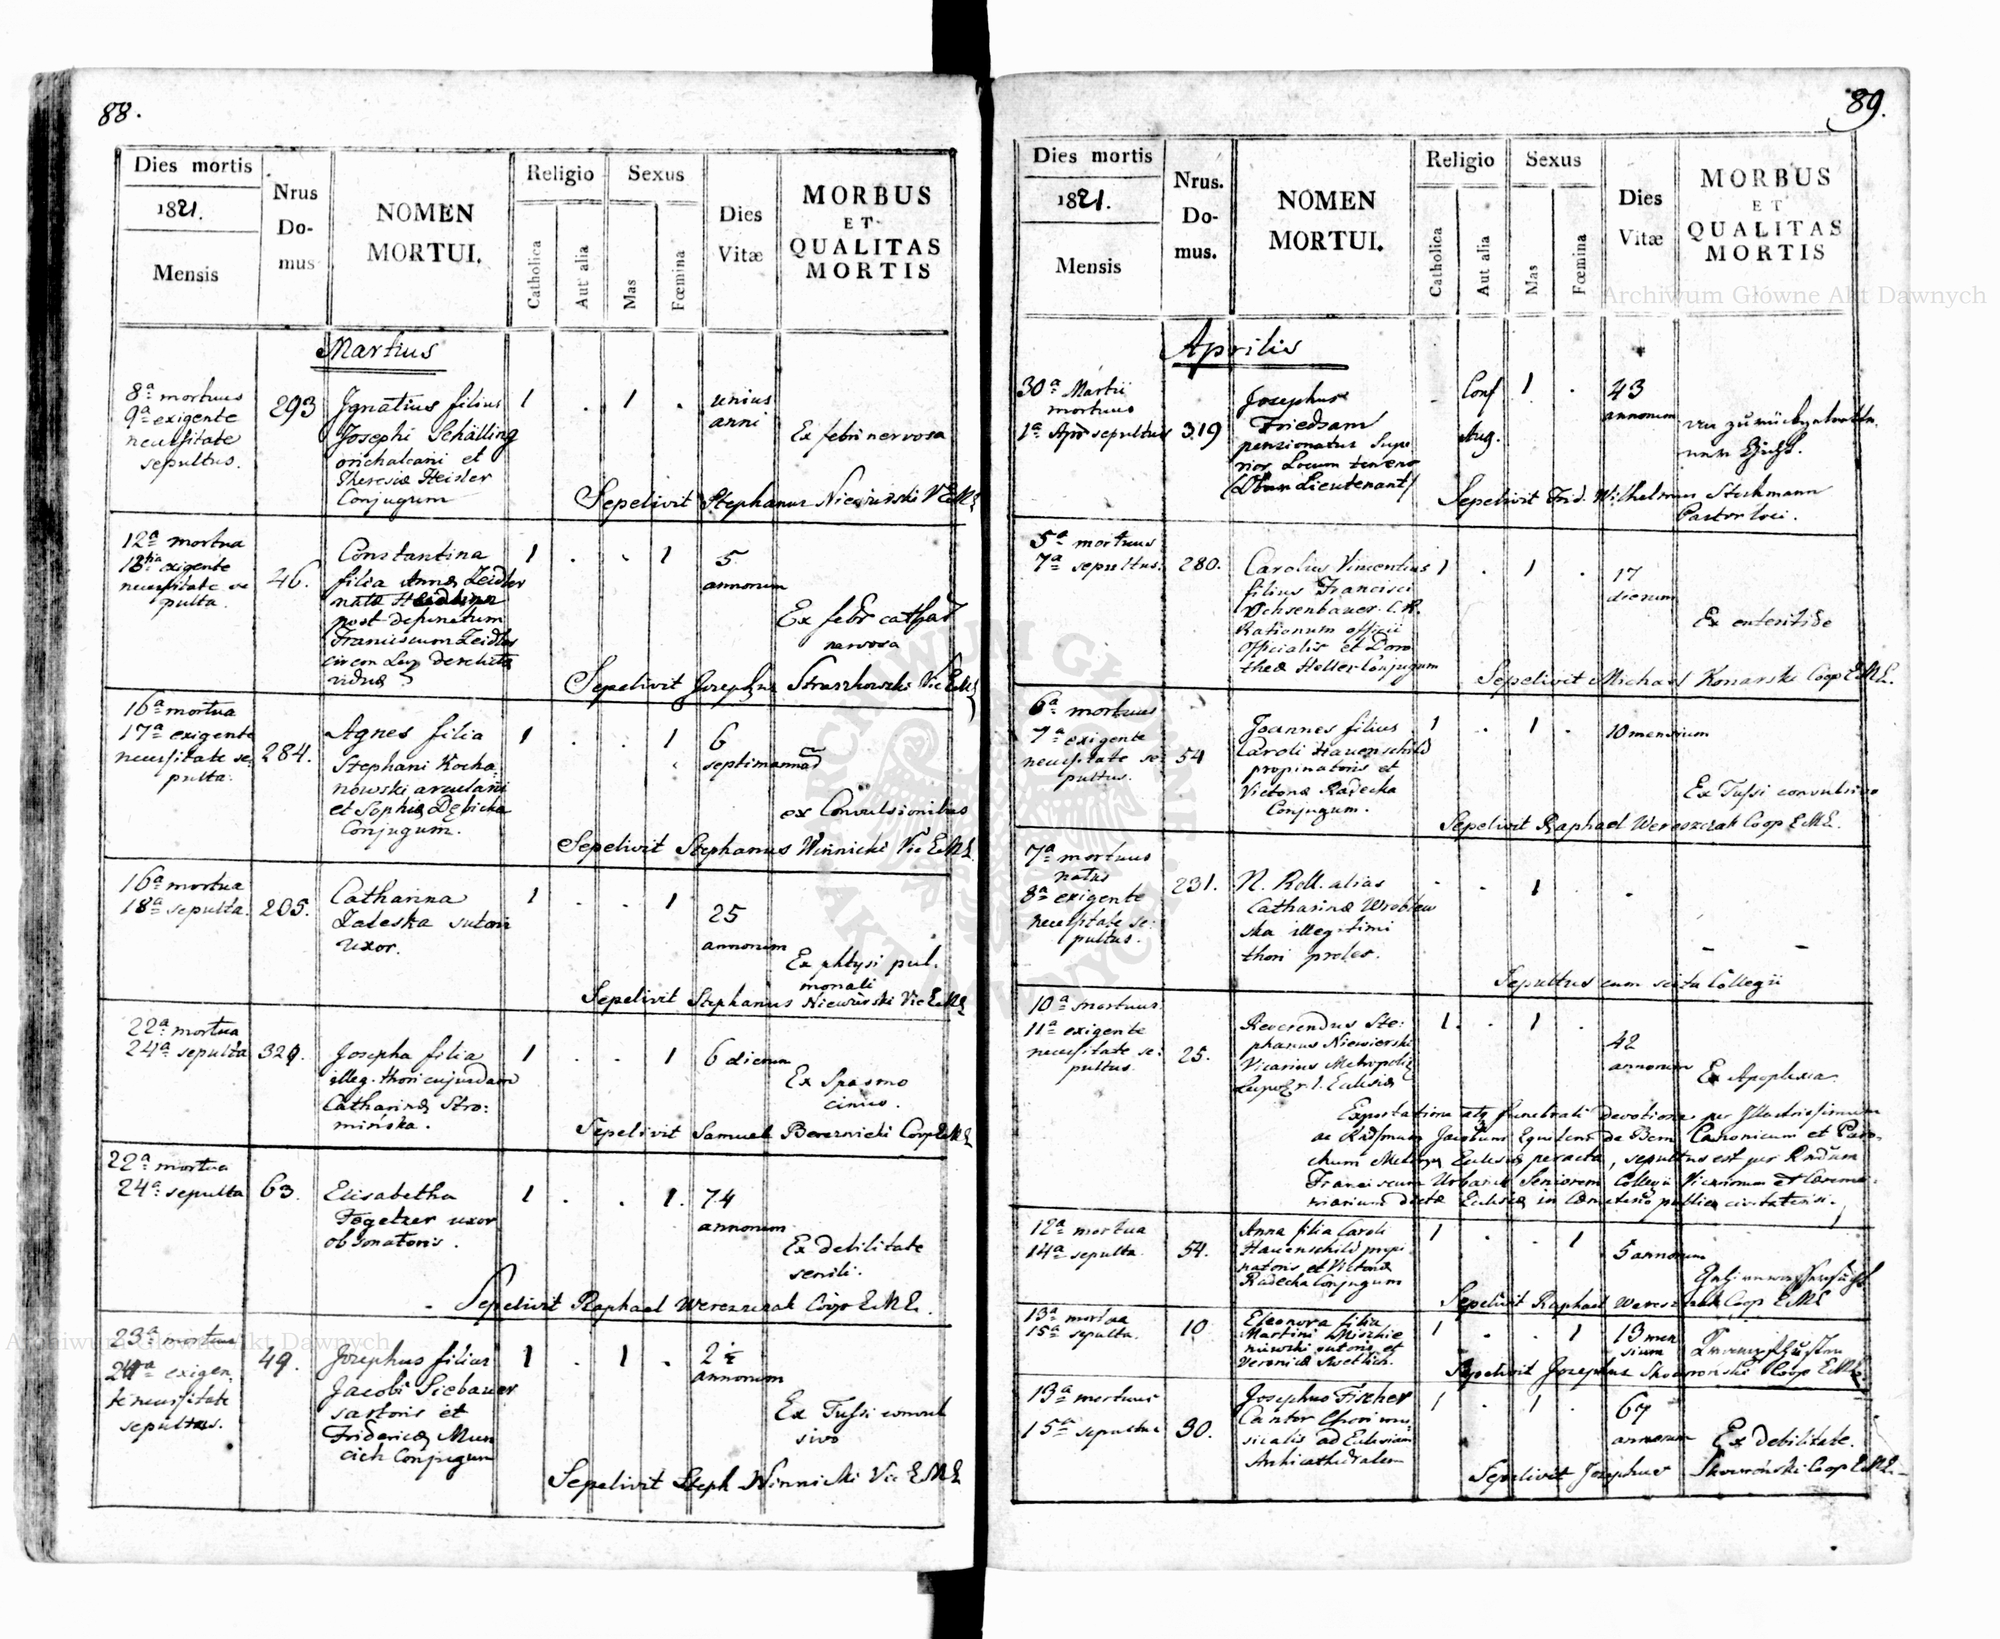 88.
Dies mortis
1821.
Mensis
Nrus
Do-
mus
NOMEN
MORTUI.
Religio
Catholica
Aut alia
Sexus
Mas
Fœmina
Dies
Vitæ
MORBUS
ET
QUALITAS
MORTIS
Martius
8ª mortuus
9ª exigente
necessitate
sepultus.
293
Ignatius filius
Josephi Schälling
orichalcarii et
Theresiæ Heisler
Conjugum
1 . 1 .
unius
anni
Ex febri nervosa
Sepelivit Stephanus Niewirski V EML
12ª mortua
exigente
necessitate se
pulta.
46.
Constantina
filia Annæ Zeidler
natæ
post defunctum
Franciscum Zeidler
derelictæ
viduæ
1 . . 1
5
annorum
Ex febr cathar
nervosa
Sepelivit Josephus Straszkowski Vic EML
16ª mortua
17ª exigente
necessitate se
pulta.
284.
Agnes filia
Stephani Kocha
nowski arcularii
et Sophiæ Dębicka
Conjugum.
1 . . 1
6
septimannar
ex Convulsionibus
Sepelivit Stephanus Winnicki Vic EML
16ª mortua
18ª sepulta.
205.
Catharina
Zaleska sutoris
uxor.
1 . . 1
25
annorum
Ex phtysi pul.
monali
Sepelivit Stephanus Niewirski Vic EML
22ª mortua
24ª sepulta
329.
Josepha filia
illeg. thori cujusdam
Catharinæ Stro:
mińska.
1 . . 1
6 dierum
Ex Spasmo
cinico.
Sepelivit Samuel Bereznicki Coop EML
22ª mortua
24ª sepulta
63.
Elisabetha
Fegetzer uxor
obsonatoris.
1 . . 1.
74
annorum
Ex debilitate
senili.
Sepelivit Raphael Wereszczak Coop EML.
23ª mortuus
24ª exigen
te necessitate
sepultus.
49.
Josephus filius
Jacobi Siebauer
sartoris et
Fridericæ Mun
cich Conjugum
1 . 1 .
2½
annorum
Ex Tussi convul
sivo
Sepelivit Steph Winnicki Vic EML
89.
Dies mortis
1821.
Mensis
Nrus.
Do-
mus.
NOMEN
MORTUI.
Religio
Catholica
Aut alia
Sexus
Mas
Fœmina
Dies
Vitæ
MORBUS
ET
QUALITAS
MORTIS
Aprilis
30ª Martii
mortuus
1ª Apr sepultus
319
Josephus
Friedsam
pensionatus Supe
rior Locum tenens
/Ober Lieutenant/
Conf
Aug.
1 .
43
annorum
Gicht.
Sepelivit Frid. Wilhelmus Stockmann
Pastor loci.
5ª mortuus
7ª sepultus.
280.
Carolus Vincentius
filius Francisci
Ochsenbauer C.R.
Rationum officii
Officialis et Doro
theæ Heller Conjugum
1 . 1 .
17
dierum
Ex enteritide
Sepelivit Michael Konarski Coop EML.
6ª mortuus
7ª exigente
necessitate se
pultus.
54
Joannes filius
Caroli Hauenschild
propinatoris et
Victoriæ Radecka
Conjugum.
1 . 1 .
10 mensium
Ex Tussi convulsivo
Sepelivit Raphael Wereszczak Coop EML.
7ª mortuus
natus
8ª exigente
necessitate se:
pultus.
231.
N. Rell. alias
Catharinæ Wroblew
ska illegitimi
thori proles.
. . 1 . .
Sepultus cum scita Collegii
10ª mortuus
11ª exigente
necessitate se:
pultus.
25.
Reverendus Ste:
phanus Niewierski
Vicarius Metropolit.
Leopol r. l. Eclesiæ
1. . 1 .
42
annorum
Ex Apoplexia.
Exportatione atq funebrali devotione per Illustrissimum
ac Rdssmum Jacobum Equitem de Bem Canonicum et Paro-
chum Metrop Eclesiæ peracta, sepultus est per Rndum
Franciscum Urbanik Seniorem Collegii Vicariorum et Cœreme-
niarium dictæ Eclesiæ in Cœmeterio publico civitatensi.
12ª mortua
14ª sepulta.
54.
Anna filia Caroli
Hauenschild propi
natoris et Victoriæ
Radecka Conjugum
1 . . 1
5 annorum
Sepelivit Raphael Wereszczak Coop EML
13ª mortua
15ª sepulta.
10
Eleonora filia
Martini
sutoris et
Veronicæ Swetlich.
1 . . 1
13 men
sium
Sepelivit Josephus Skowroński Coop EML.
13ª mortuus
15ª sepultus
30.
Josephus Fischer
Cantor Chori mu
sicalis ad Eclesiam
Archicathedralem
1 . 1 .
67
annorum
Ex debilitate.
Sepelivit Josephus Skowroński Coop EML.
Archiwum Główne Akt Dawnych
Archiwum Główne Akt Dawnych
ARCHIWUM GŁÓWNE AKT DAWNYCH